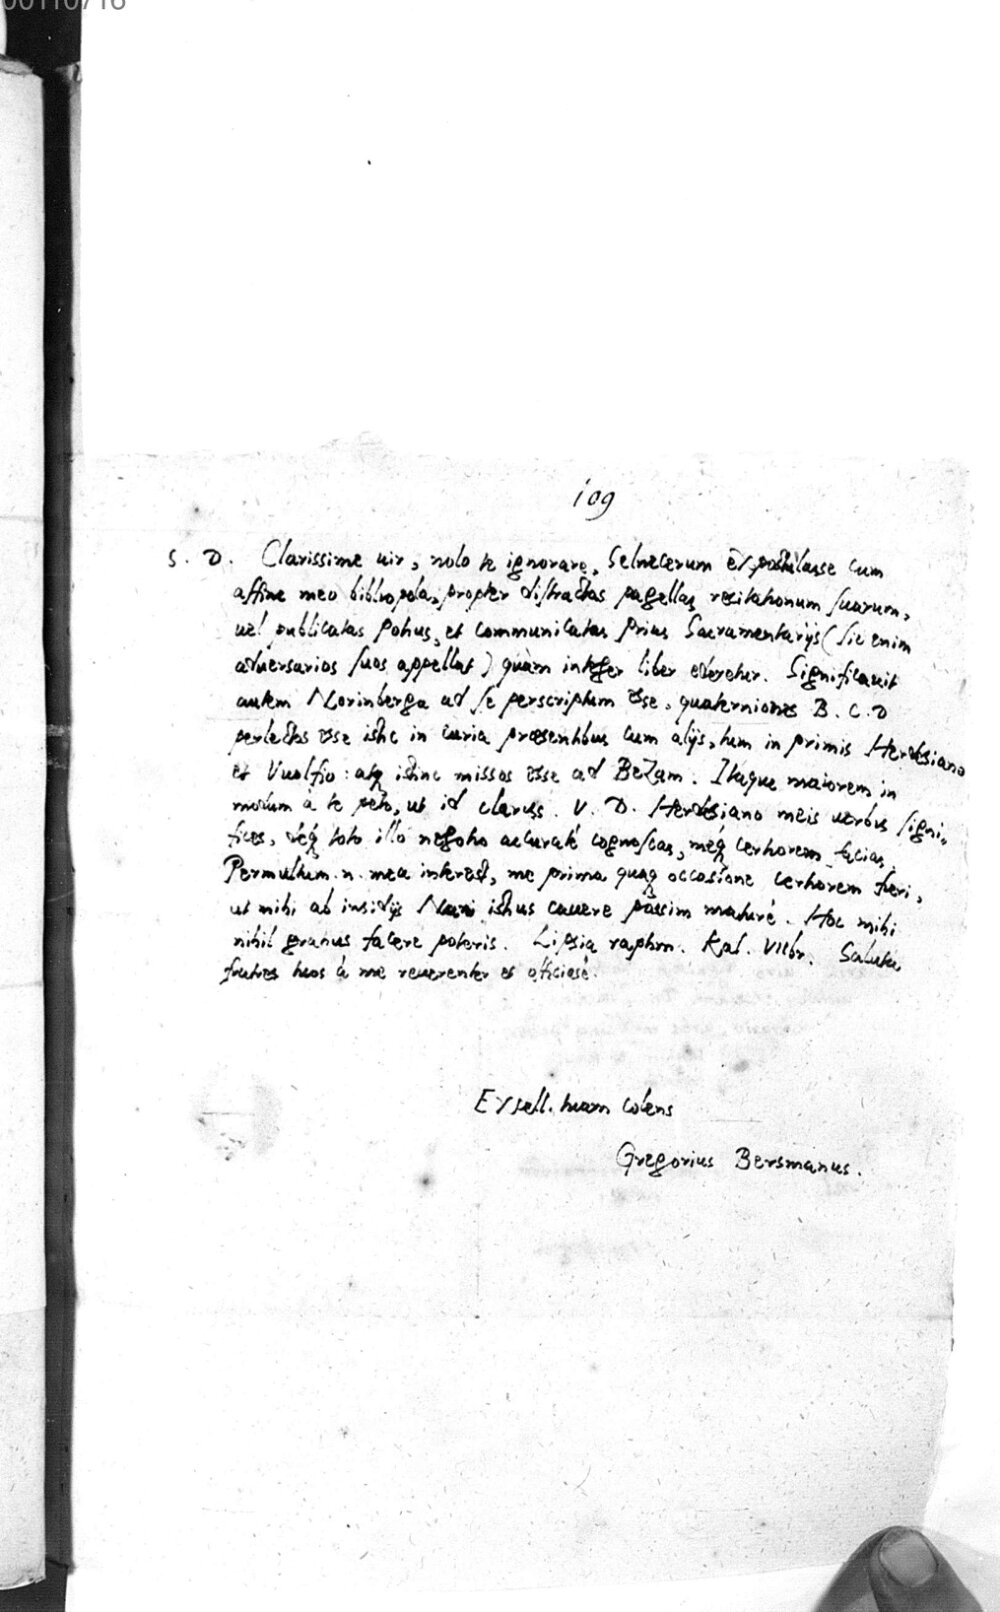 00110716
109
S. D. Clarissime uir, nolo te ignorare, Selneccerum expostulasse cum
affine meo bibliopola, propter distractas pagellas recitationum suarum,
uel publicatas potius, et communicatas prius Sacramentarijs (sic enim
aduersarios suos appellat) quàm integer liber ederetur. Significauit
autem Norinberga ad se perscriptum esse, quaterniones B. C. D
perlectos esse istic in curia præsentibus cum alijs, tum in primis Herdesiano
et Vuolfio: atq istinc missos esse ad Bezam. Itaque maiorem in
modum a te peto, ut id clariss. V. D. Herdesiano meis uerbis signi-
fices, deq́ toto illo negotio accuratè cognoscas, meq́ certiorem facias.
Permultum .n. mea interest, me prima quaq occasione certiorem fieri,
ut mihi ab insidijs istius cauere possim maturè. Hoc mihi
nihil gratius facere poteris. Lipsia raptim. Kal. VIIbr. Saluta
fratres tuos à me reuerenter et officiosè.
Excell. tuam colens
Gregorius Bersmanus.